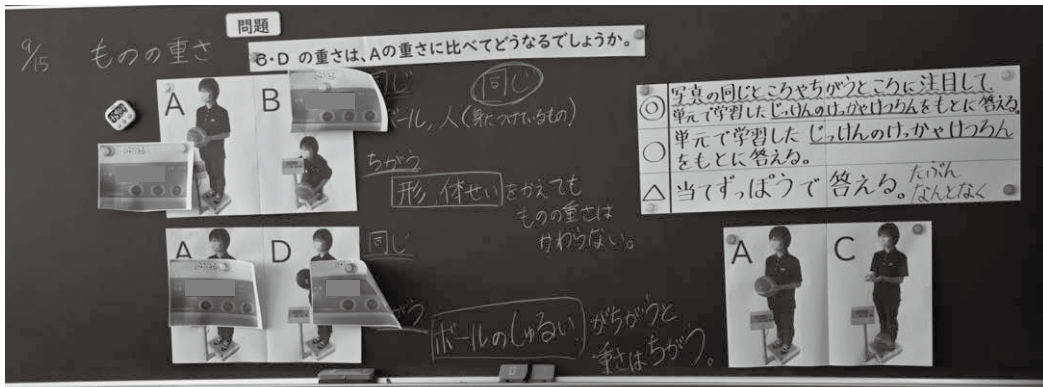 9/15
ものの重さ
問題
B・D の重さは、Aの重さに比べてどうなるでしょうか。
A
B
同じ
同じ
ボール,人(身につけているもの)
ちがう
形、体せいをかえても
ものの重さは
かわらない。
A
D
同じ
ちがう
ボールのしゅるい がちがうと
重さはちがう。
◎
写真の同じところやちがうところに注目して、
単元で学習したじっけんのけっかやけつろんをもとに答える。
○
単元で学習した じっけんのけっかやけつろん
をもとに答える。
△
当てずっぽうで 答える。
たぶん
なんとなく
A
C